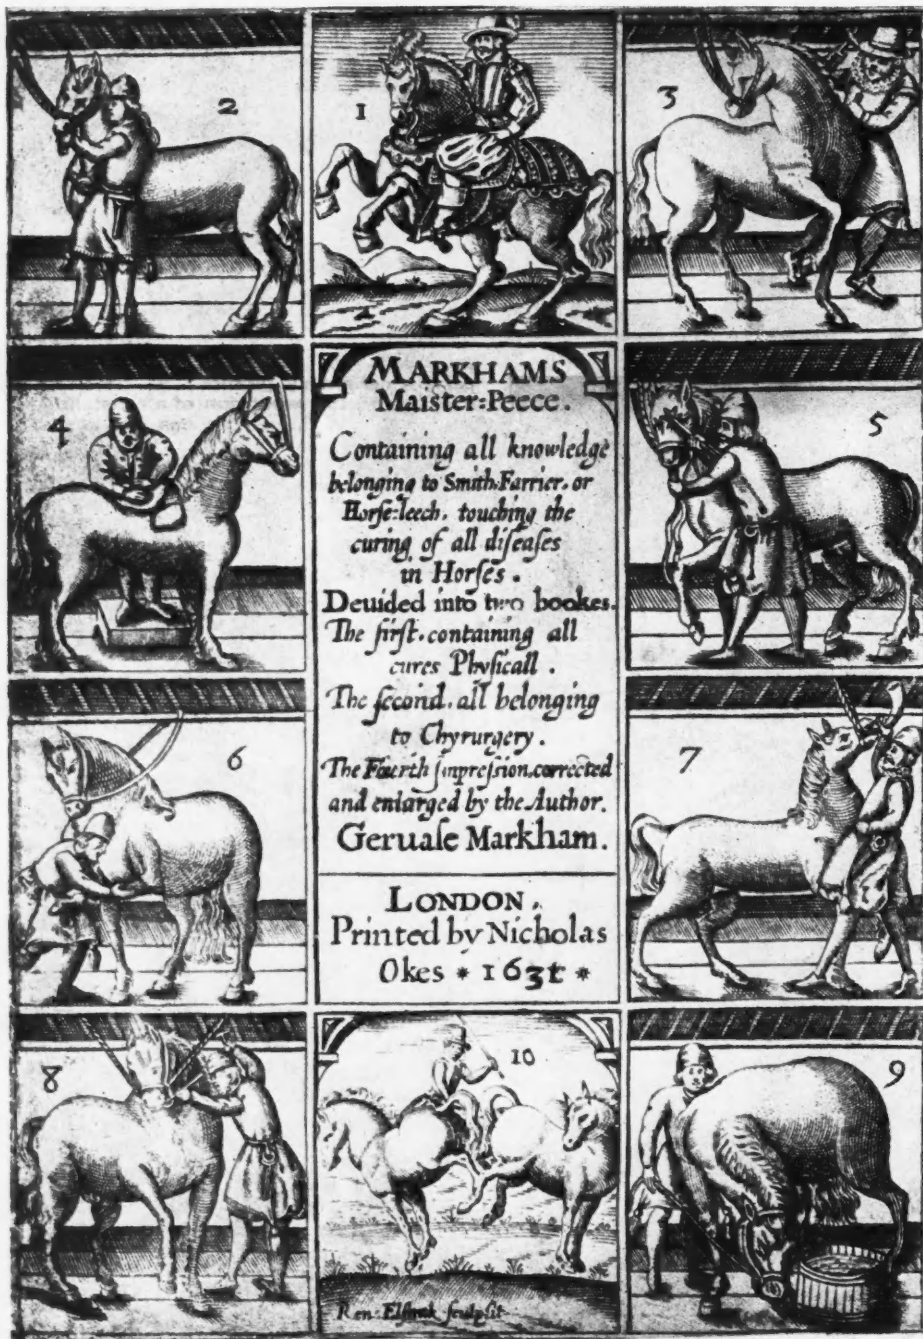 2
1
3
4
MARKHAMS
Maister=Peece.
Containing all knowledge
belonging to Smith, Farrier, or
Horſe=leech, touching the
curing of all diſeaſes
in Horſes.
Deuided into two bookes.
The firſt, containing all
cures Phyſicall.
The ſecond, all belonging
to Chyrurgery.
The Fourth Impreſsion, corrected
and enlarged by the Author.
Geruaſe Markham.
5
6
7
LONDON.
Printed by Nicholas
Okes * 1631 *
8
10
9
Ren: Elſtrak ſculpſit